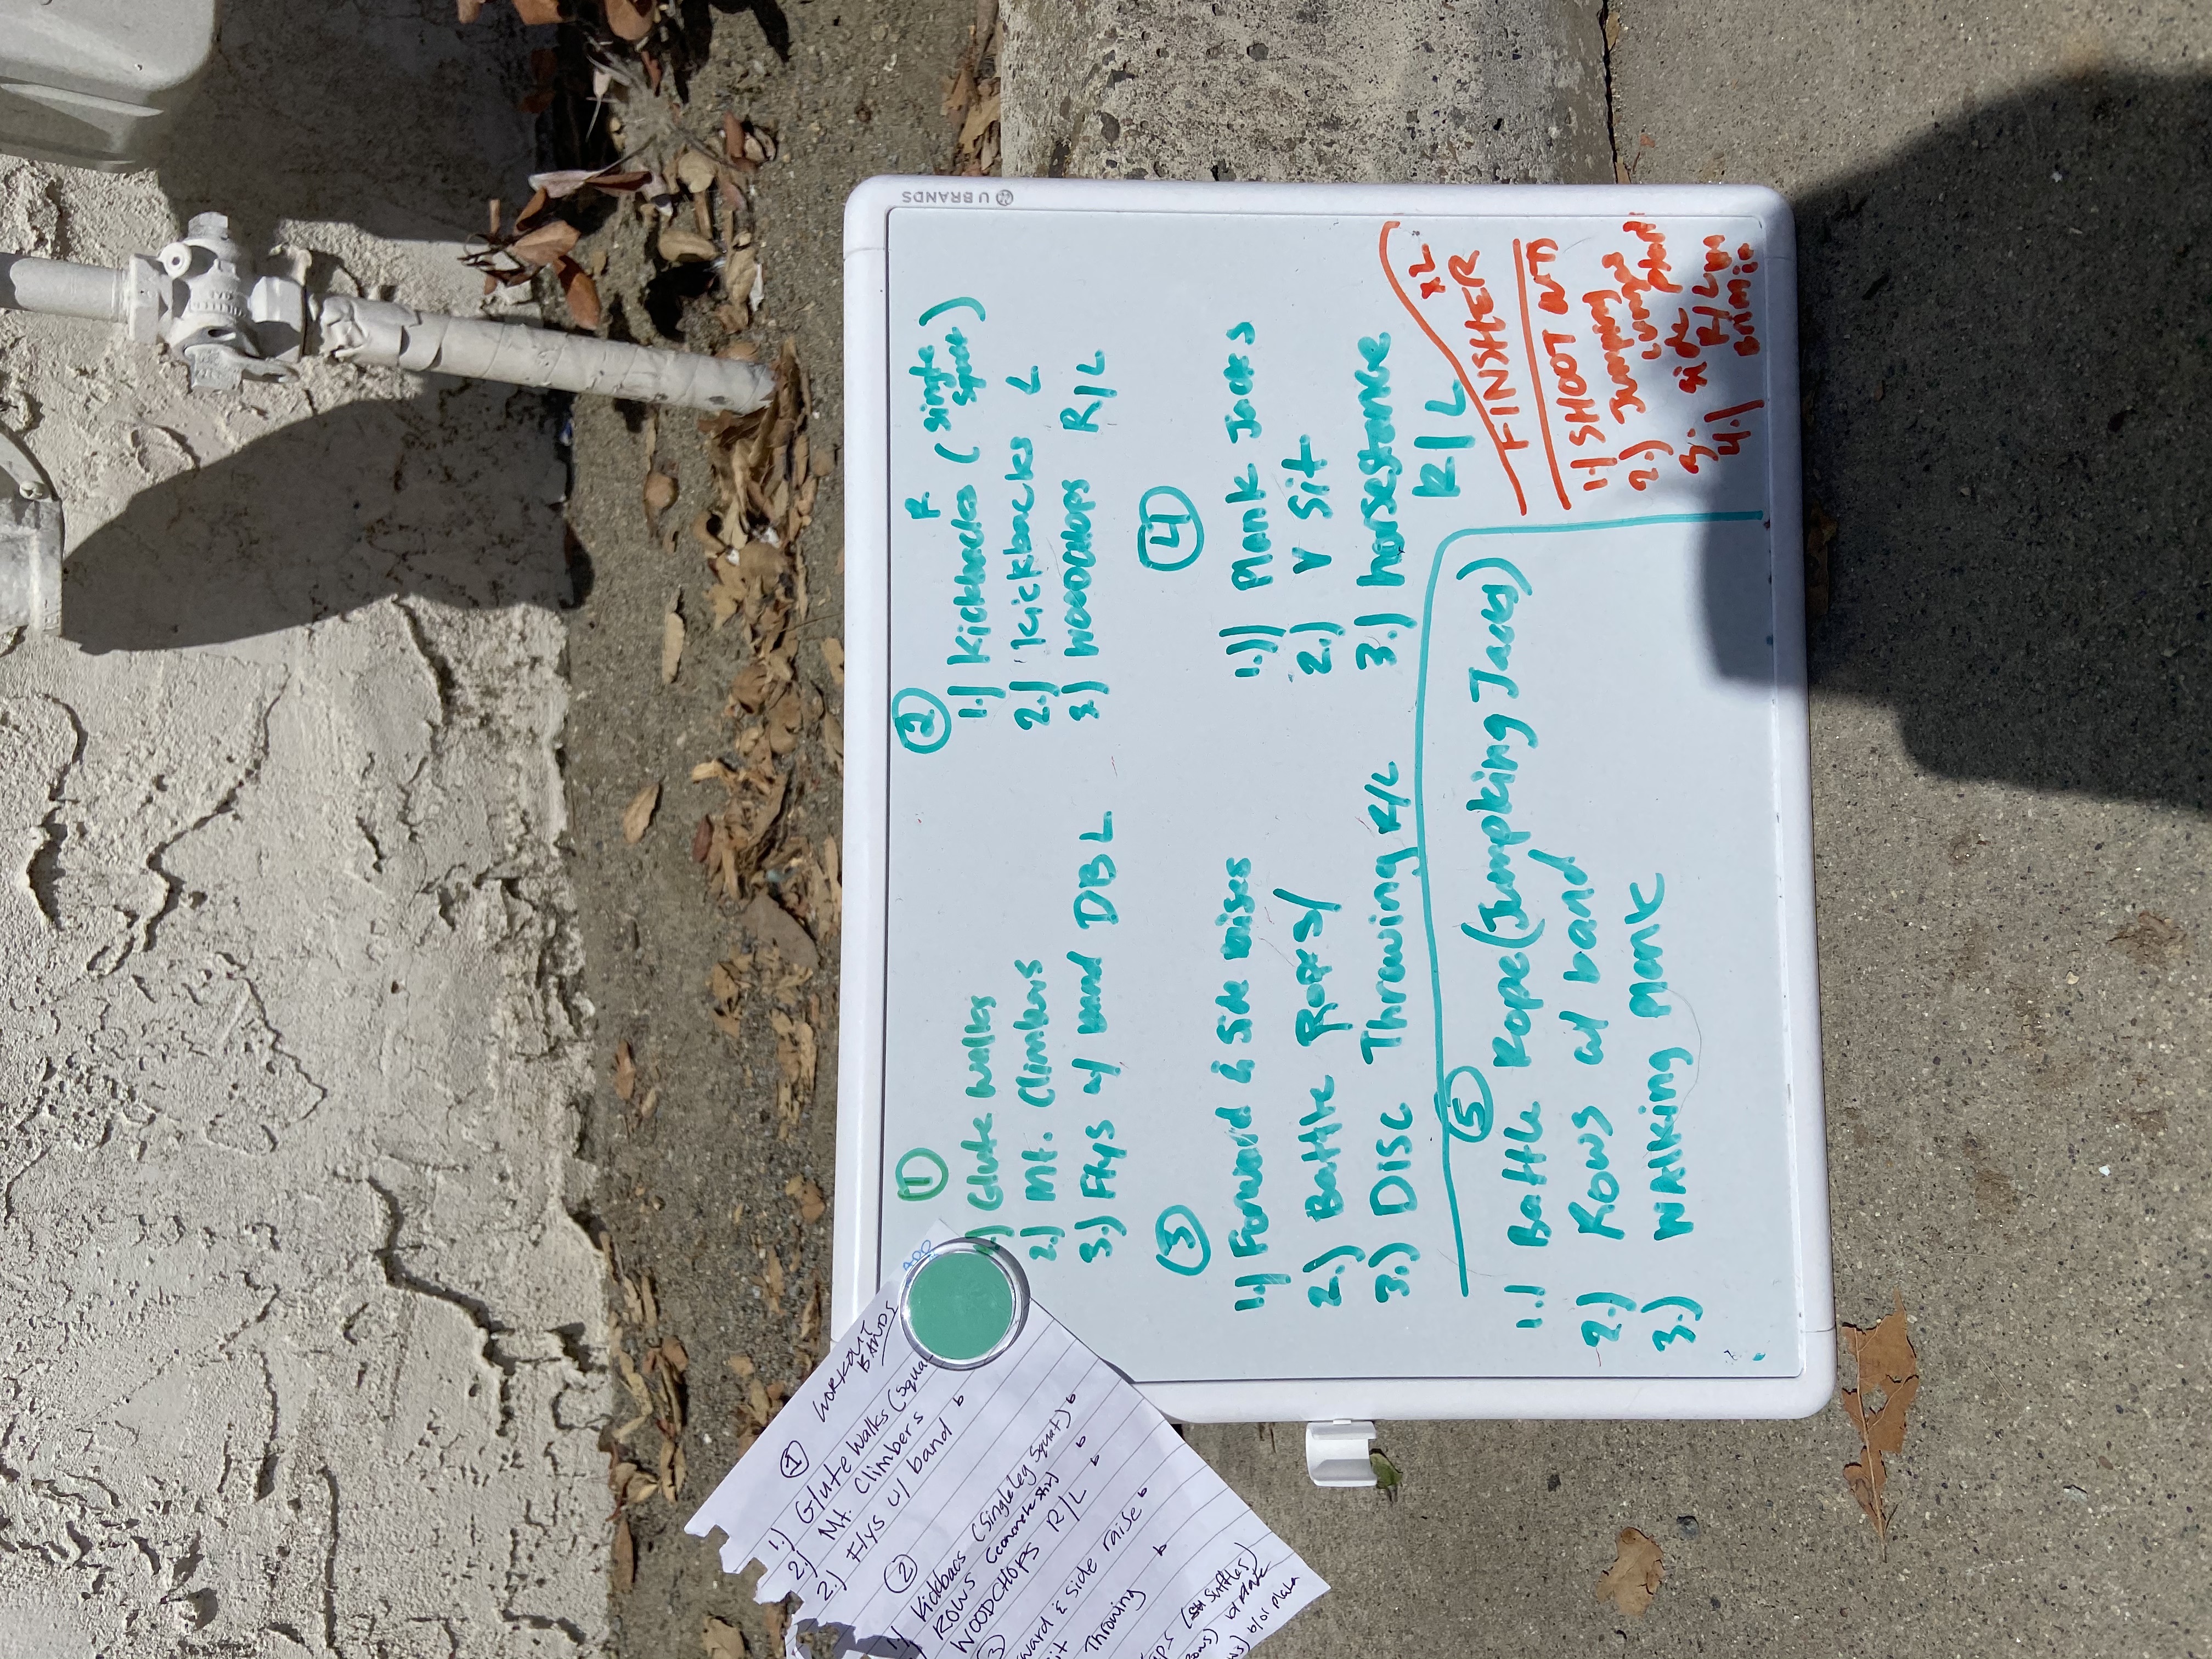 ①
WORKOUT
BANDS
1.) Glute Walks (Squa
2.) Mt. Climbers
2.) Flys w/ band b
②
Kickbacs (Single leg Squat) b
ROWS b
WOODCHOPS R/L b
③
ward & side raise b
it
Throwing b
①
1.) Glute Walks
2.) Mt. Climbers
3.) Flys w/ band DBL
②
R.
1.) Kickbacks (single
squat)
2.) Kickbacks L
3.) WOODCHOPS R/L
③
1.) Forward & Side raises
2.) Battle Ropes/
3.) Disc Throwing R/L
④
1.)) Plank Jacks
2.) V Sit
3.) horsestance
R/L
⑤
1.) Battle Rope (Jumpking Jacks)
2.) Rows w/ band
3.) WAlking Plank
FINSHER
1.) SHOOT OUTS
2.) Jumping
Lunges
3. side plank
4.)
U BRANDS